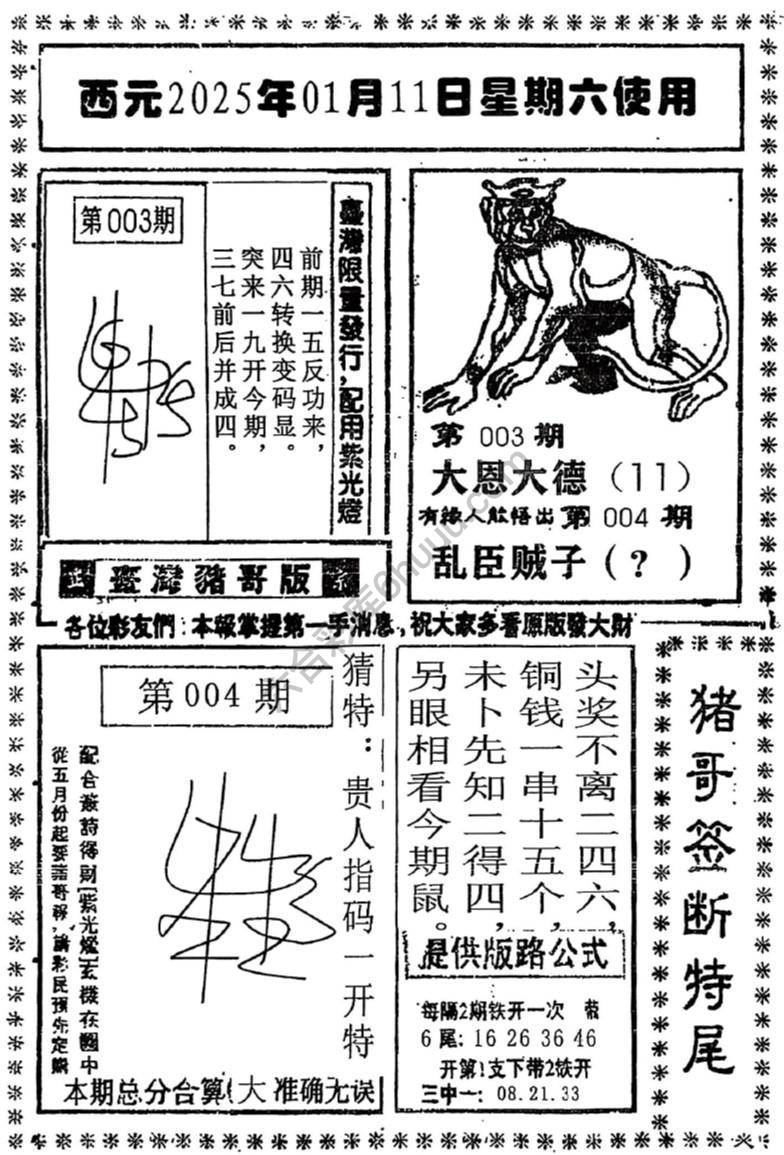 西元2025年01月11日星期六使用
第003期
前期一五反功来，
四六转换变码显。
突来一九开今期，
三七前后并成四。
臺灣限量發行，配用紫光燈
第 003 期
大恩大德（11）
有緣人能悟出 第 004 期
乱臣贼子（？）
臺灣豬哥版
各位彩友們：本報掌握第一手消息，祝大家多看原版發大財
第004期
猜特：贵人指码一开特
配合簽詩得財［紫光燈］玄機在圖中
從五月份起要豬哥報，請彩民預先定購
本期总分合算：大 准确无误
头奖不离二四六，
铜钱一串十五个，
未卜先知二得四，
另眼相看今期鼠。
提供版路公式
每隔2期铁开一次
6尾：16 26 36 46
开第1支下带2铁开
三中一：08.21.33
猪哥签断特尾
六合彩库6huuu.com